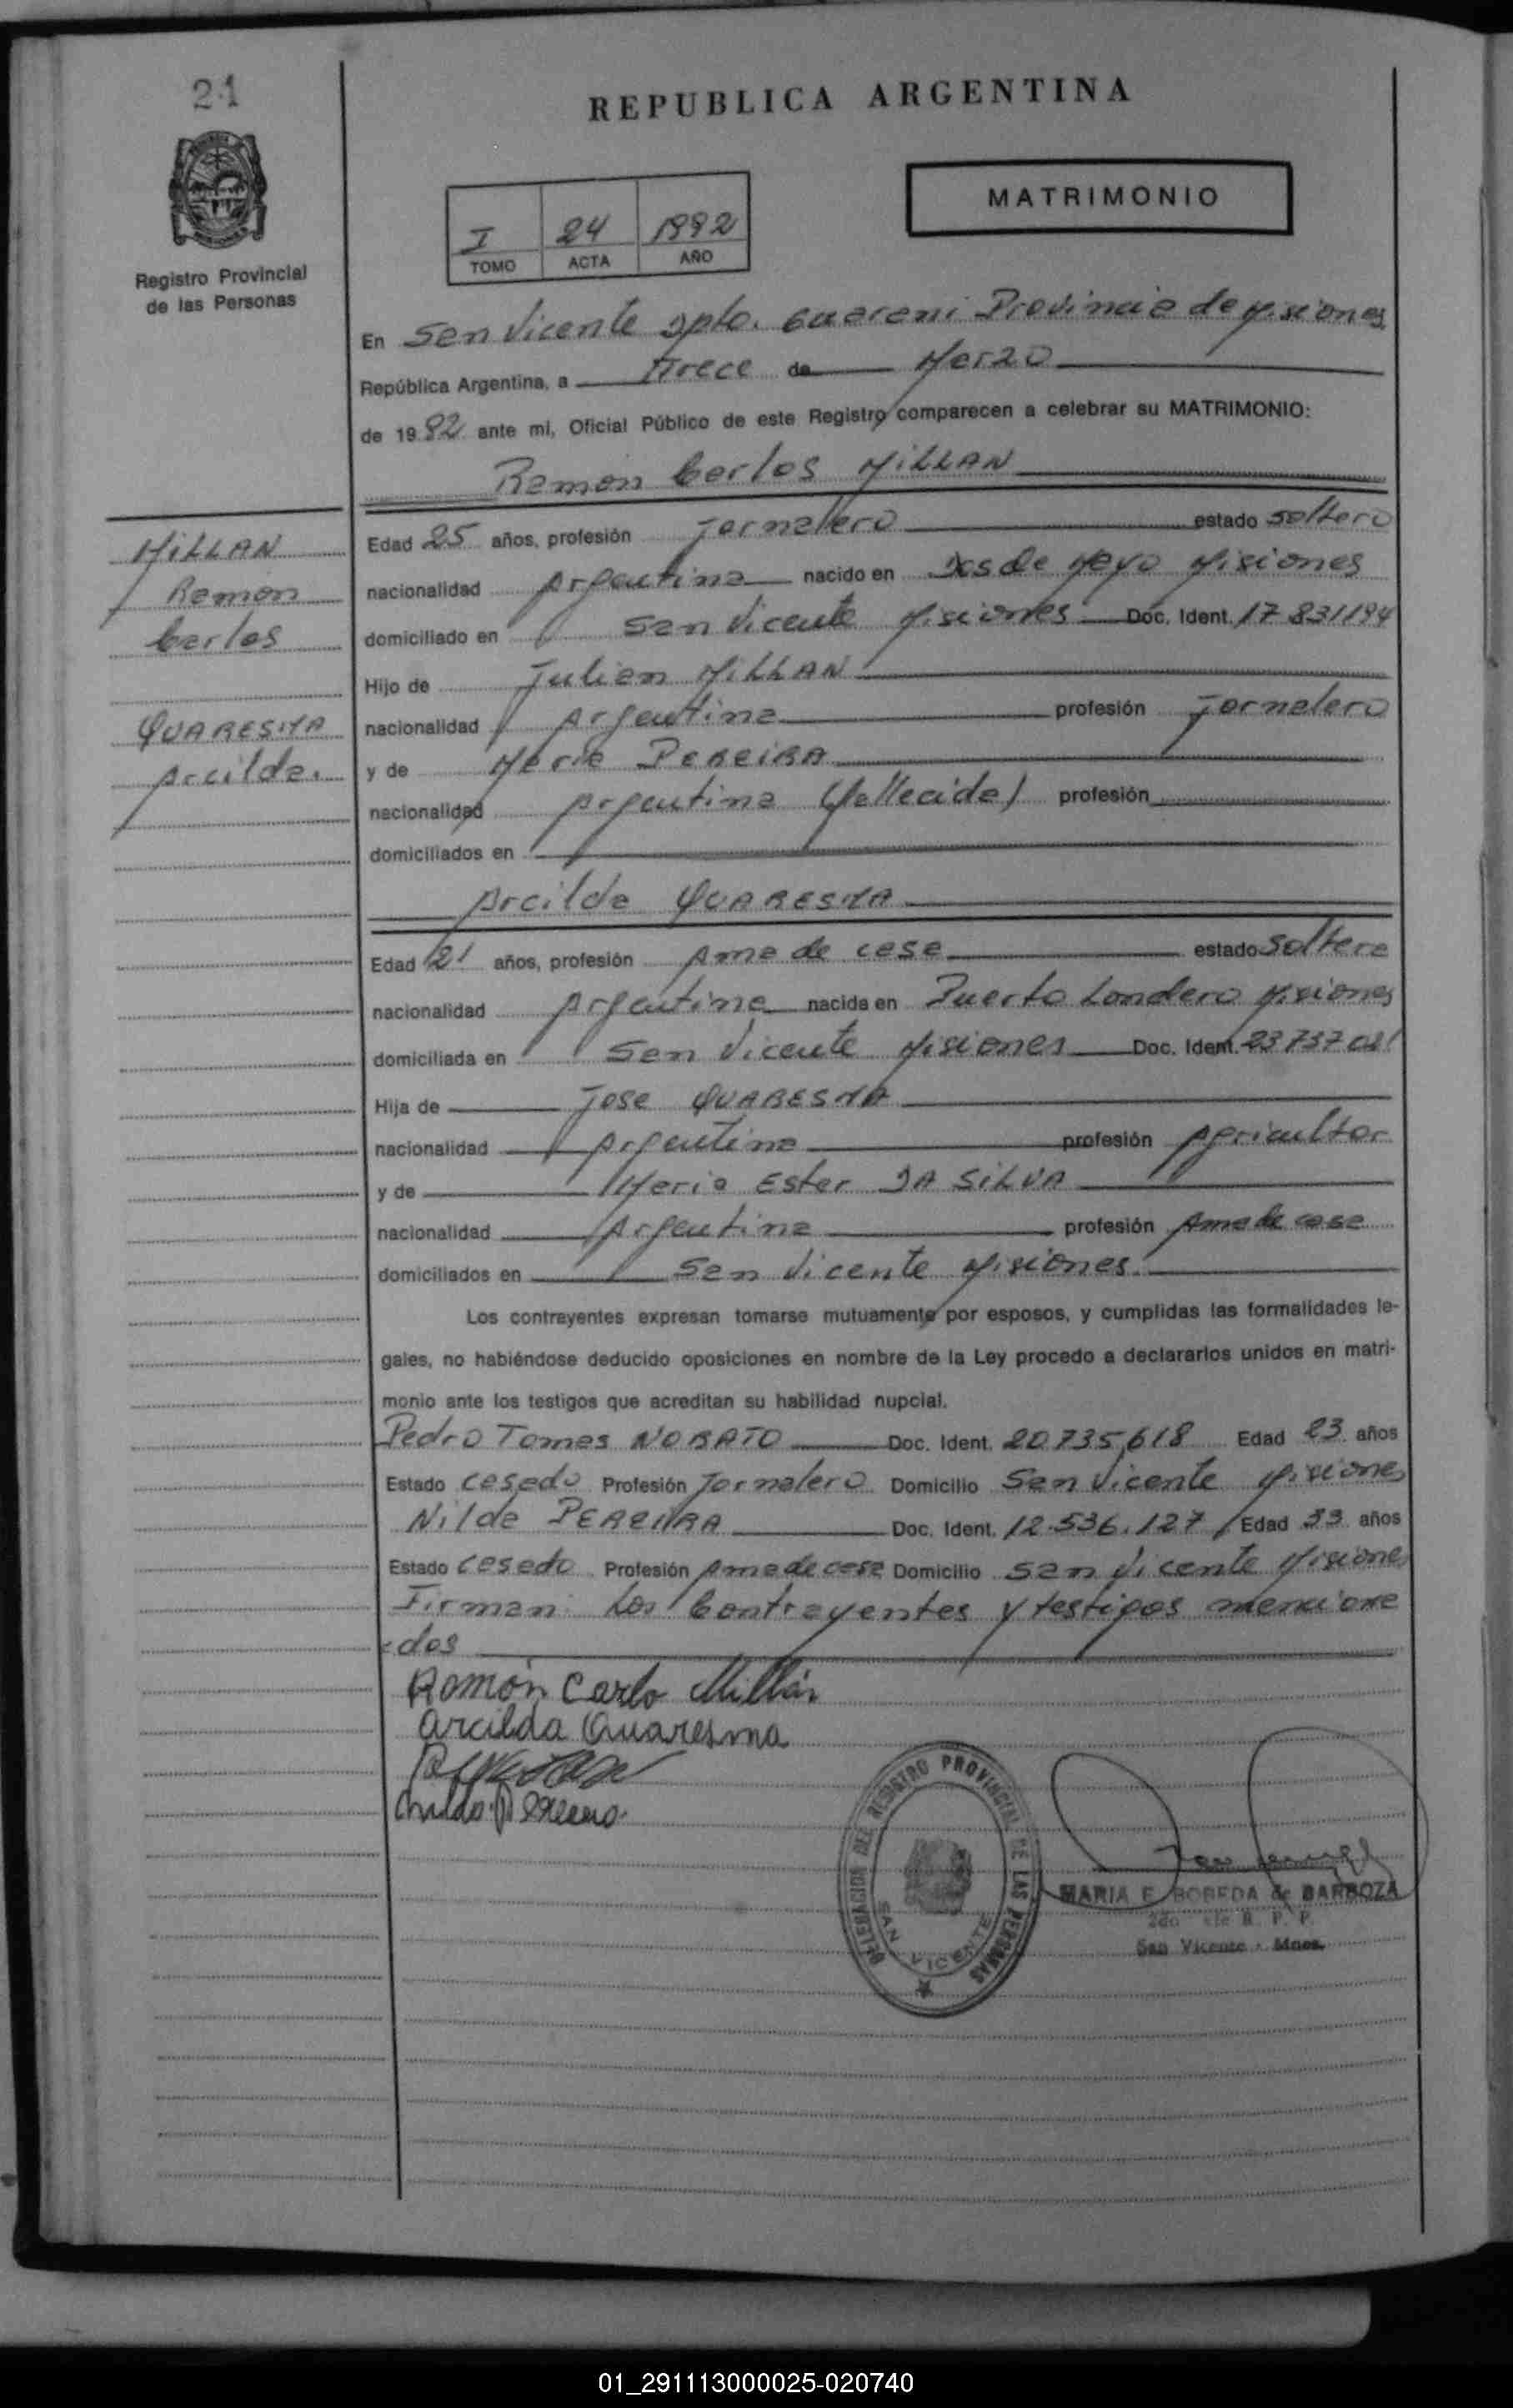 21
REPUBLICA ARGENTINA
MATRIMONIO
I 24 1992
TOMO ACTA AÑO
Registro Provincial
de las Personas
En San Vicente Dpto. Guarani Provincia de Misiones
República Argentina, a Trece de Marzo
de 1992 ante mí, Oficial Público de este Registro comparecen a celebrar su MATRIMONIO:
Ramon Carlos MILLAN
MILLAN
Ramon
Carlos
QUARESMA
Arcilda.
Edad 25 años, profesión Jornalero estado soltero
nacionalidad Argentina nacido en Dos de Mayo Misiones
domiciliado en San Vicente Misiones Doc. Ident. 17 831194
Hijo de Julian MILLAN
nacionalidad Argentina profesión Jornalero
y de Maria PEREIRA
nacionalidad Argentina (fallecida) profesión
domiciliados en
Arcilda QUARESMA
Edad 21 años, profesión Ama de casa estado soltera
nacionalidad Argentina nacida en Puerto Londero Misiones
domiciliada en San Vicente Misiones Doc. Ident.
Hija de Jose QUARESMA
nacionalidad Argentina profesión Agricultor
y de Maria Ester DA SILVA
nacionalidad Argentina profesión Ama de casa
domiciliados en San Vicente Misiones.
Los contrayentes expresan tomarse mutuamente por esposos, y cumplidas las formalidades le-
gales, no habiéndose deducido oposiciones en nombre de la Ley procedo a declararlos unidos en matri-
monio ante los testigos que acreditan su habilidad nupcial.
Pedro Tomas NORATO Doc. Ident. 20.735.618 Edad 23 años
Estado casado Profesión Jornalero Domicilio San Vicente Misiones
Nilda PEREIRA Doc. Ident. 12.536.127 Edad 33 años
Estado casado Profesión Ama de casa Domicilio San Vicente Misiones
Firman Los Contrayentes y testigos menciona
dos
Ramón Carlo Millán
arcilda Quaresma
DELEGACION DEL REGISTRO PROVINCIAL DE LAS PERSONAS
SAN VICENTE
MARIA E. BOBEDA de BARBOZA
San Vicente - Mnes.
01_291113000025-020740